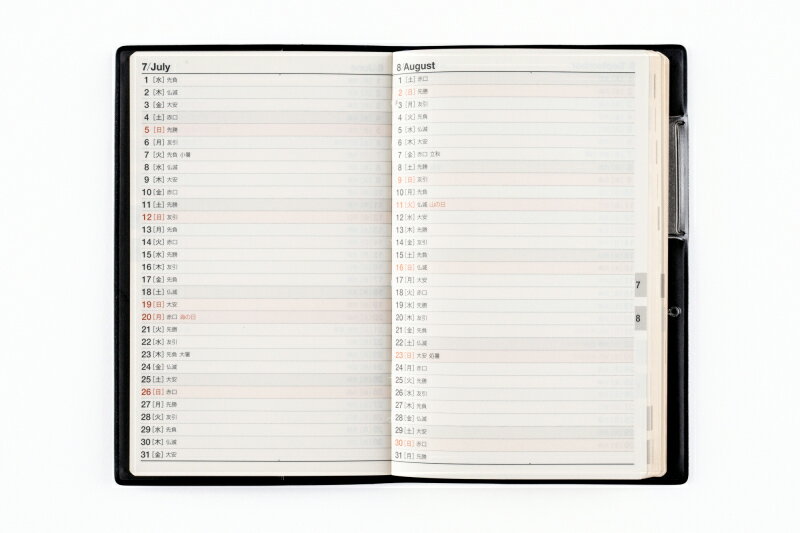 7/July
1 [水] 先負
2 [木] 仏滅
3 [金] 大安
4 [土] 赤口
5 [日] 先勝
6 [月] 友引
7 [火] 先負 小暑
8 [水] 仏滅
9 [木] 大安
10 [金] 赤口
11 [土] 先勝
12 [日] 友引
13 [月] 先負
14 [火] 赤口
15 [水] 先勝
16 [木] 友引
17 [金] 先負
18 [土] 仏滅
19 [日] 大安
20 [月] 赤口 海の日
21 [火] 先勝
22 [水] 友引
23 [木] 先負 大暑
24 [金] 仏滅
25 [土] 大安
26 [日] 赤口
27 [月] 先勝
28 [火] 友引
29 [水] 先負
30 [木] 仏滅
31 [金] 大安
8/August
1 [土] 赤口
2 [日] 先勝
3 [月] 友引
4 [火] 先負
5 [水] 仏滅
6 [木] 大安
7 [金] 赤口 立秋
8 [土] 先勝
9 [日] 友引
10 [月] 先負
11 [火] 仏滅 山の日
12 [水] 大安
13 [木] 先勝
14 [金] 友引
15 [土] 先負
16 [日] 仏滅
17 [月] 大安
18 [火] 赤口
19 [水] 先勝
20 [木] 友引
21 [金] 先負
22 [土] 仏滅
23 [日] 大安 処暑
24 [月] 赤口
25 [火] 先勝
26 [水] 友引
27 [木] 先負
28 [金] 仏滅
29 [土] 大安
30 [日] 赤口
31 [月] 先勝
7
8